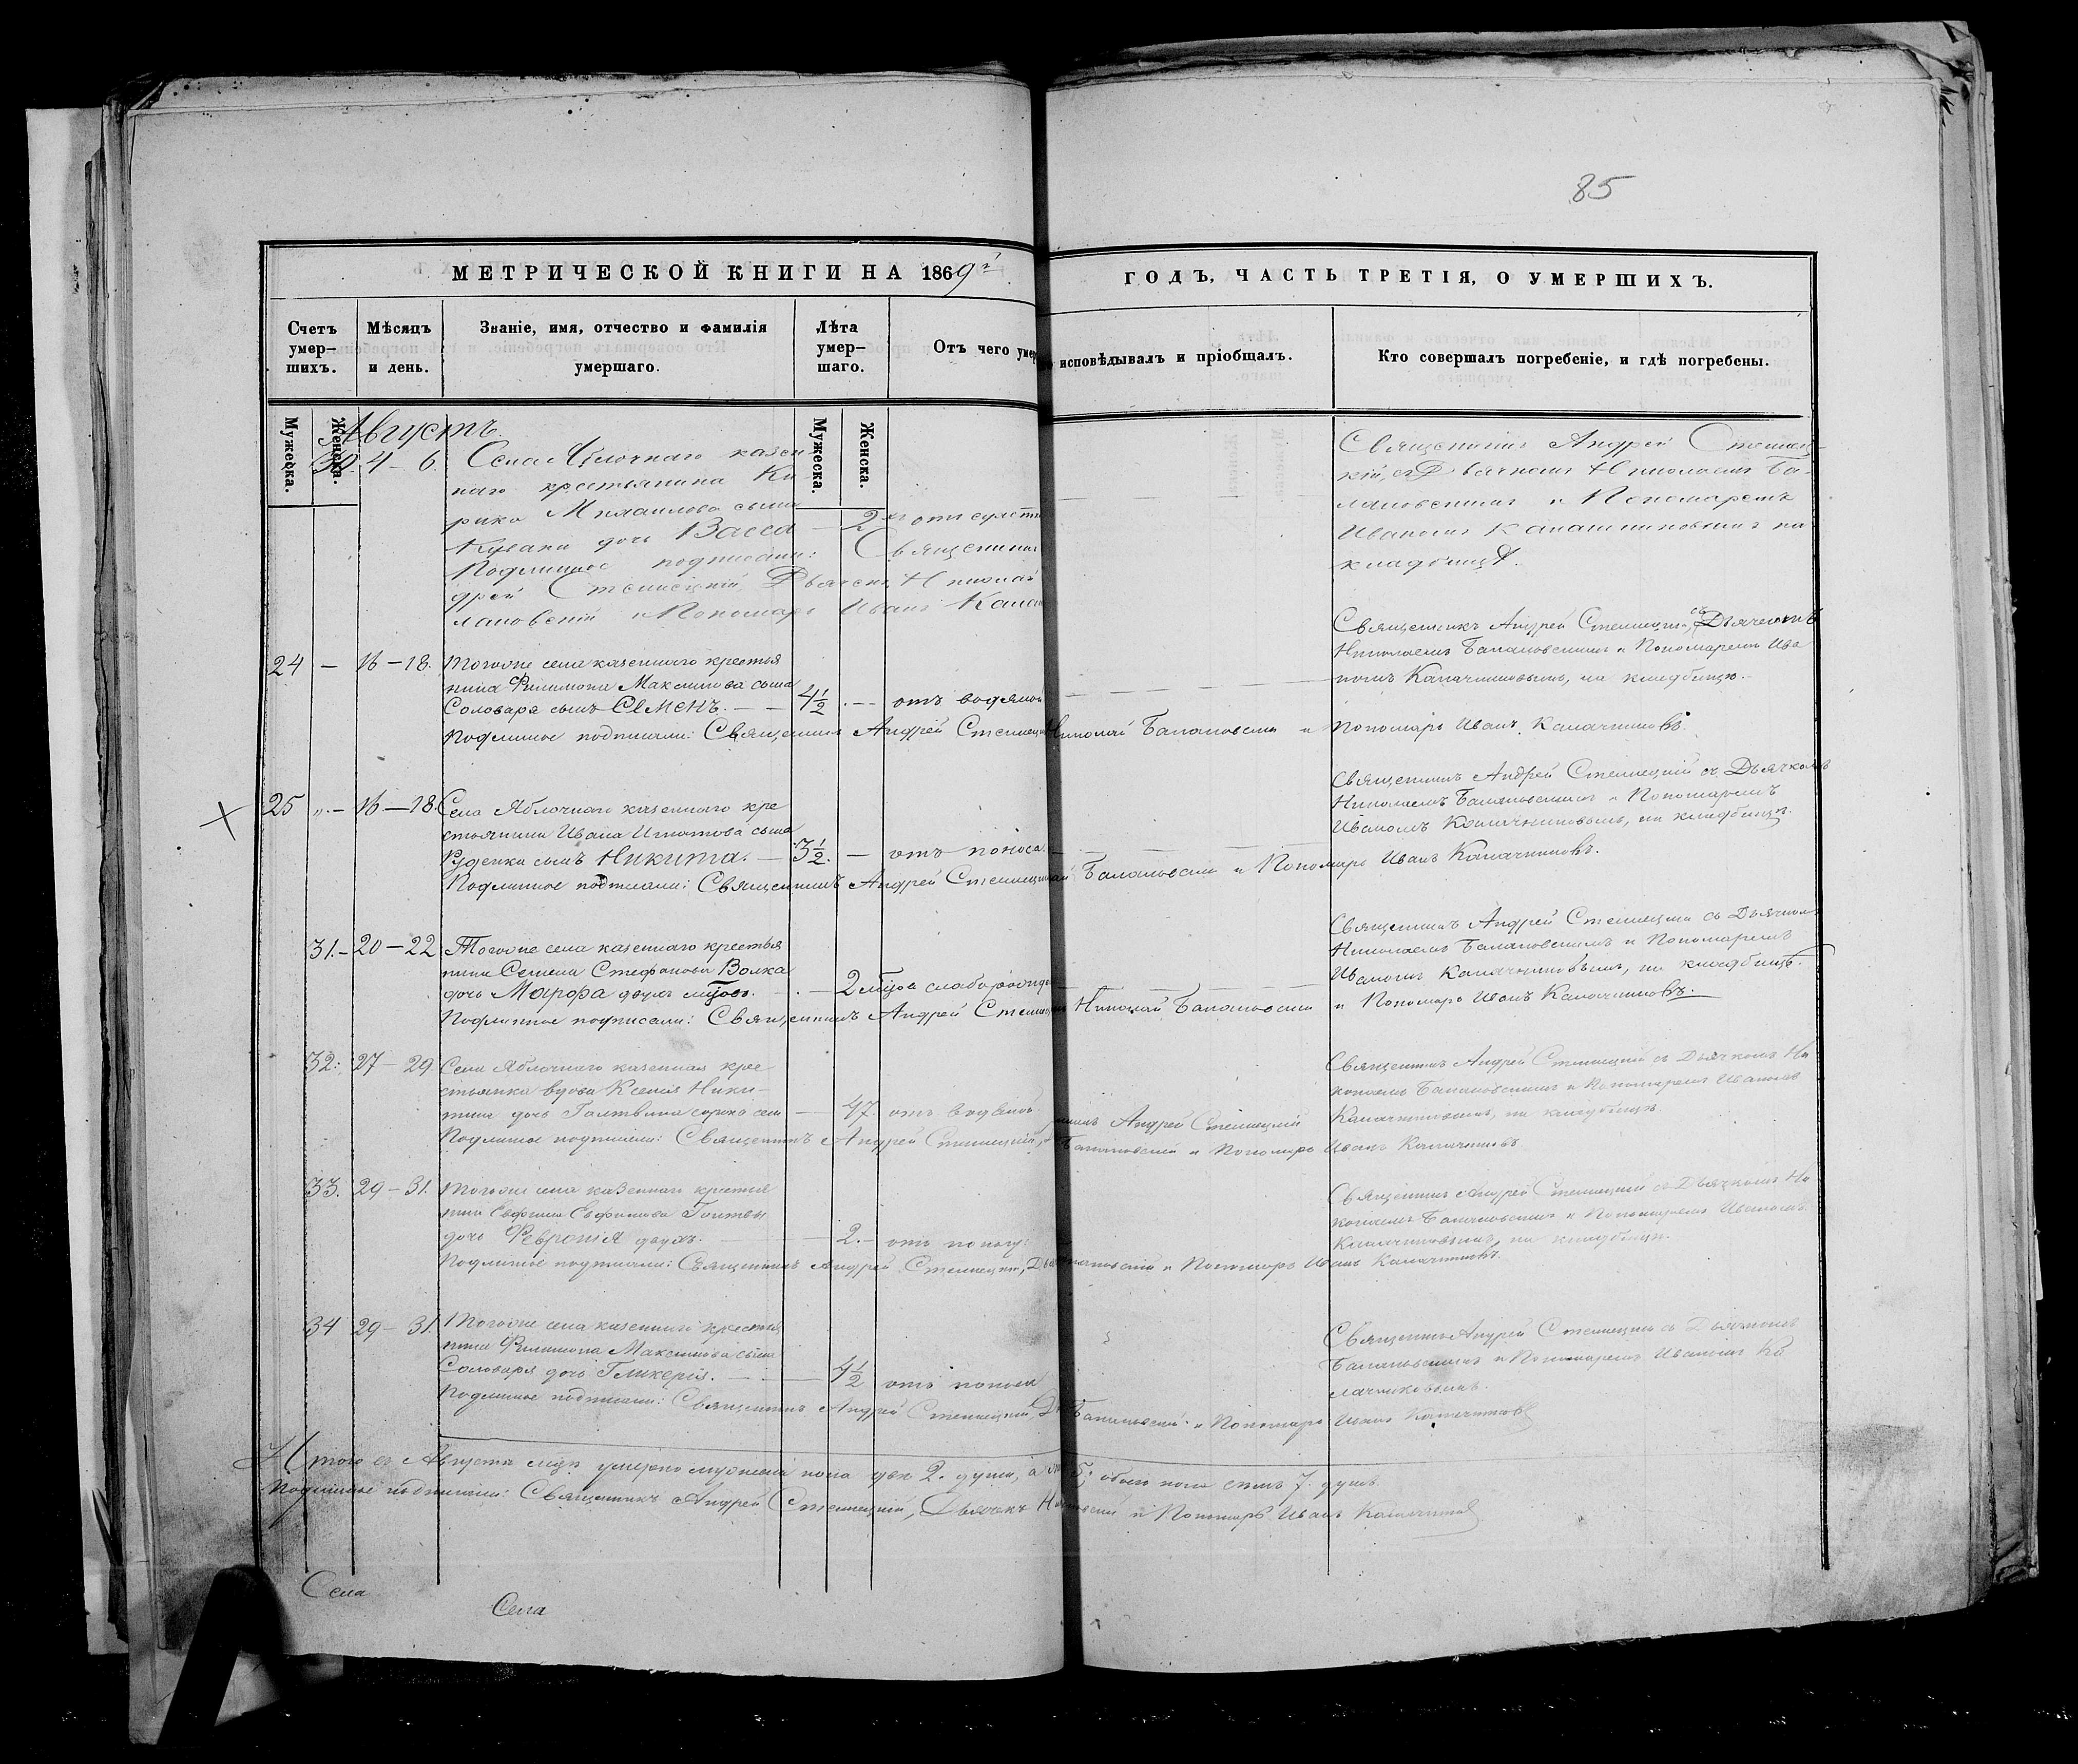 85
МЕТРИЧЕСКОЙ КНИГИ НА 1869й
ГОДЪ, ЧАСТЬ ТРЕТІЯ, О УМЕРШИХЪ.
Счетъ умер-
шихъ.
Мѣсяцъ
и день.
Званіе, имя, отчество и фамилія
умершаго.
Лѣта
умер-
шаго.
Отъ чего умер
исповѣдывалъ и пріобщалъ.
Кто совершалъ погребеніе, и гдѣ погребены.
Мужеска.
Женска.
Мужеска.
Женска.
Августъ
30. 4 – 6. Села Яблочнаго казен-
наго крестьянина Ки-
рика Михаилова сына
дочь Васса — 2
Подлинное подписали: Священникъ
дрей Стеллецкій, Дьячекъ Никола
лановскій и Пономарь Иванъ Кала
Священникъ Андрей Стеллец-
кій, съ Дьячкомъ Николаемъ Ба-
лановскимъ и Пономаремъ
Иваномъ Калашниковымъ на
кладбищѣ.
24 — 16 – 18. Тогоже села казеннаго крестья
нина Филимона Максимова сына
Соловаря сынъ Семенъ. — 4½ — отъ водяной
Подлинное подписали: Священникъ Андрей Стеллецк Николай Балановскій и Пономарь Иванъ Калачниковъ.
Священникъ Андрей Стеллецкій, съ Дьячкомъ
Николаемъ Балановскимъ и Пономаремъ Ива
номъ Калачниковымъ, на кладбищѣ.
25 „ – 16 – 18. Села Яблочнаго казеннаго кре
стьянина Ивана Игнатова сына
Руденка сынъ Никита. — 3½. — отъ поноса.
Подлинное подписали: Священникъ Андрей Стеллецк ай Балановскій и Пономарь Иванъ Калачниковъ.
Священникъ Андрей Стеллецкій съ Дьячкомъ
Николаемъ Балановскимъ и Пономаремъ
Иваномъ Калачниковымъ, на кладбищѣ.
31. – 20 – 22 Тогоже села казеннаго крестья
нина Семена Стефанова Волка
дочь Марфа двухъ мцовъ. — 2 мцов слаборожден
Подлинное подписали: Священникъ Андрей Стеллец Николай Балановскій и Пономарь Иванъ Калачниковъ.
Священникъ Андрей Стеллецкій съ Дьячкомъ
Николаемъ Балановскимъ и Пономаремъ
Иваномъ Калачниковымъ, на кладбищѣ.
32. 27 – 29 Села Яблочнаго казенная кре
стьянка вдова Ксенія Ники-
тина дочь сорокъ сем — 47. отъ водяной
Подлинное подписали: Священникъ Андрей Стеллецкій, Балановскій и Пономарь Иванъ Калачниковъ.
Андрей Стеллецкій
Священникъ Андрей Стеллецкій съ Дьячкомъ Ни
колаемъ Балановскимъ и Пономаремъ Иваномъ
Калачниковымъ, на кладбищѣ.
33. 29 – 31. Тогоже села казеннаго крестья
нина Евфимова
дочь Февронія двухъ. — 2. – отъ
Подлинное подписали: Священникъ Андрей Стеллецкій, Дья лановскій и Пономарь Иванъ Калачниковъ.
Священникъ Андрей Стеллецкій съ Дьячкомъ Ни
колаемъ Балановскимъ и Пономаремъ Иваномъ
Калачниковымъ, на кладбищѣ.
34 29 – 31. Тогоже села казеннаго крестья
нина Филимона Максимова сына
Соловаря дочь Гликерія. — 4½ отъ поноса
Подлинное подписали: Священникъ Андрей Стеллецкій, Дь Балановскій и Пономарь Иванъ Калачниковъ
Священникъ Андрей Стеллецкій съ Дьячкомъ
Балановскимъ и Пономаремъ Иваномъ Ка
лачниковымъ.
Итого въ Августѣ мцѣ умерло мужеска пола двѣ 2. души, а 5; обоего пола семь 7. душъ.
Подлинное подписали: Священникъ Андрей Стеллецкій, Дьячекъ Н новскій и Пономарь Иванъ Калачниковъ
Села
Села